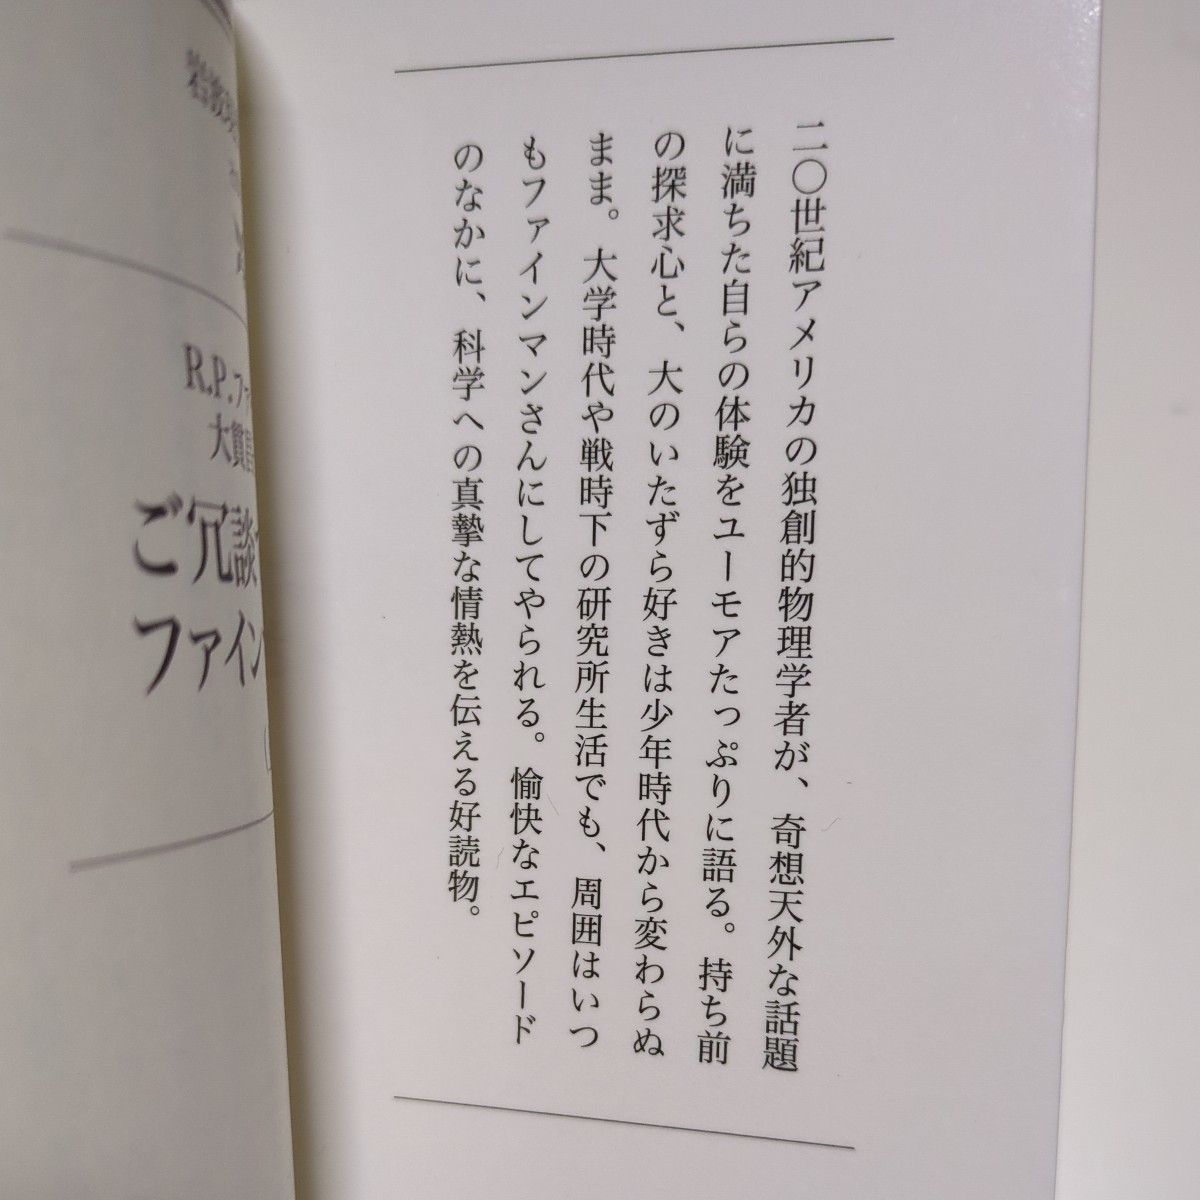 二〇世紀アメリカの独創的物理学者が、奇想天外な話題
に満ちた自らの体験をユーモアたっぷりに語る。持ち前
の探求心と、大のいたずら好きは少年時代から変わらぬ
まま。大学時代や戦時下の研究所生活でも、周囲はいつ
もファインマンさんにしてやられる。愉快なエピソード
のなかに、科学への真摯な情熱を伝える好読物。
R.P.ファ
大貫昌
ご冗談
ファイン